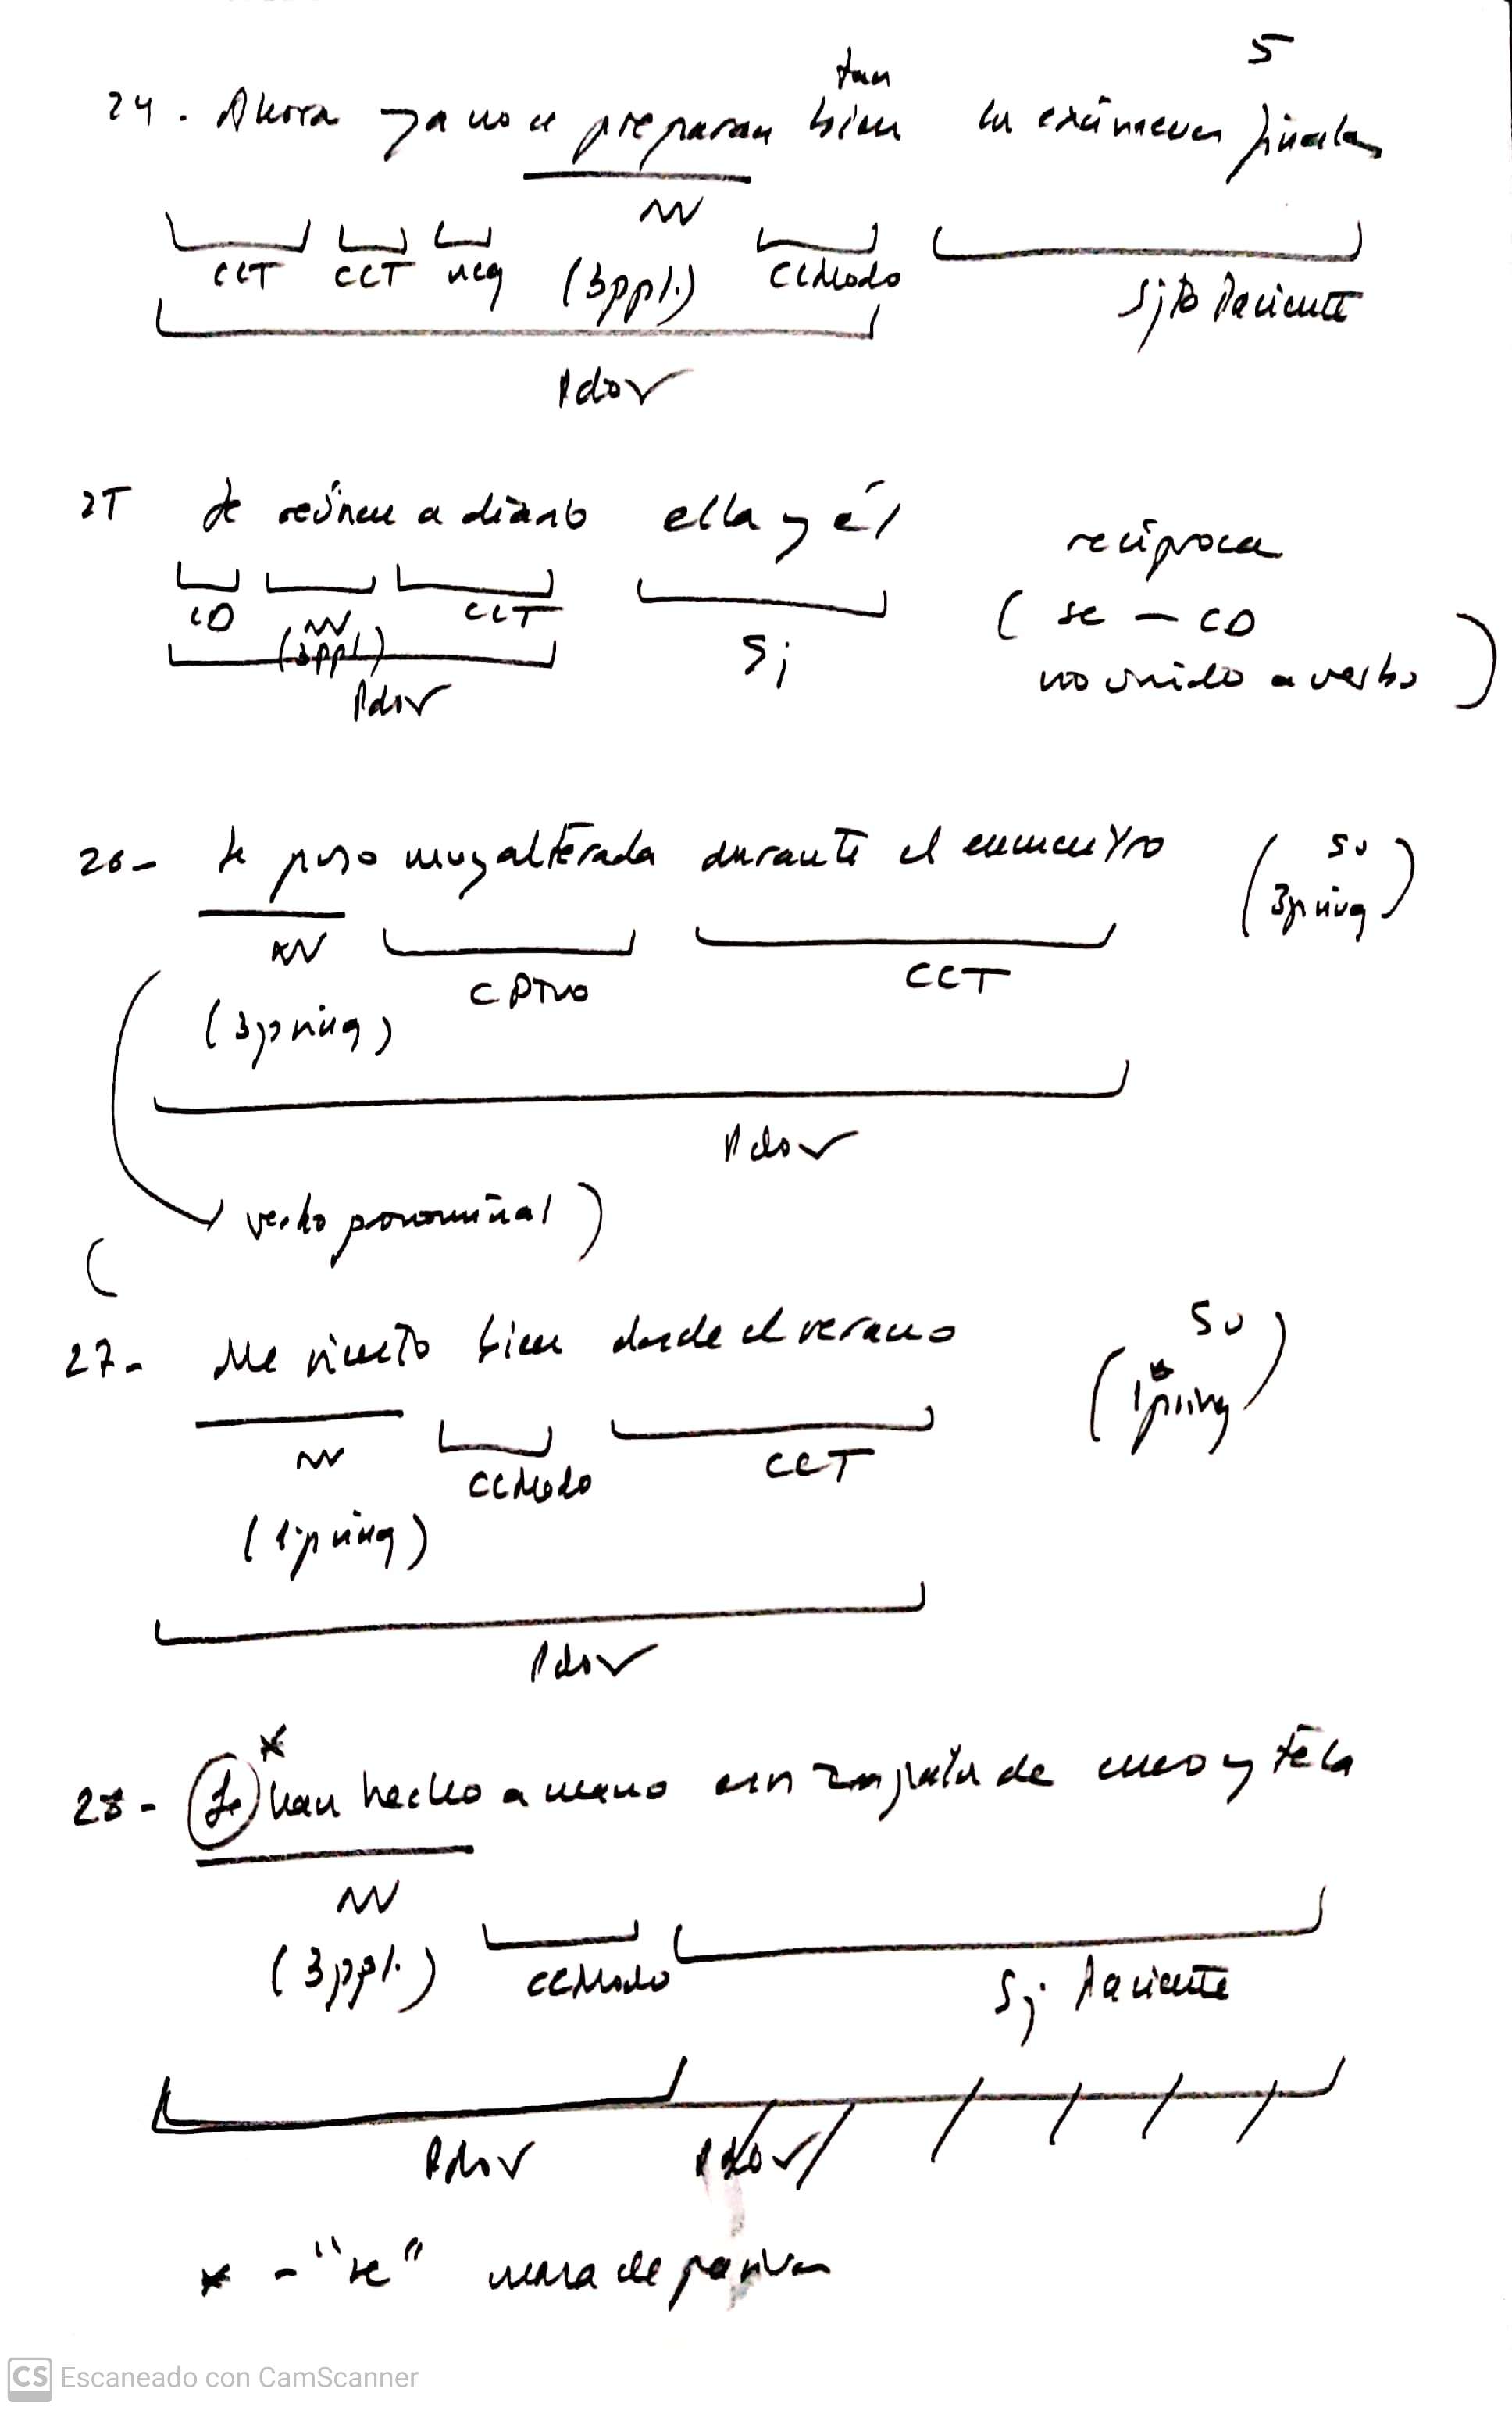 5
tan
24. Ahora ya no se preparan bien los exámenes finales
NV
CCT CCT neg (3ppl.) CCModo Sjto Paciente
PdoV
25 Se reúnen a diario ella y él
recíproca
CD NV CCT Sj ( se - CD
(3ppl) no unido a verbo )
PdoV
26- Se puso muy alterada durante el encuentro ( SO 3psing )
NV CPtvo CCT
(3psing)
PdoV
( verbo pronominal )
27- Me siento bien desde el verano ( SO 1psing )
NV CCModo CCT
(1psing)
PdoV
*
28- Se han hecho a mano esos zapatos de cuero y tela
NV
(3ppl.) CCModo Sj. Paciente
PdoV PdoV
* - "se" marca de pasiva
CS Escaneado con CamScanner